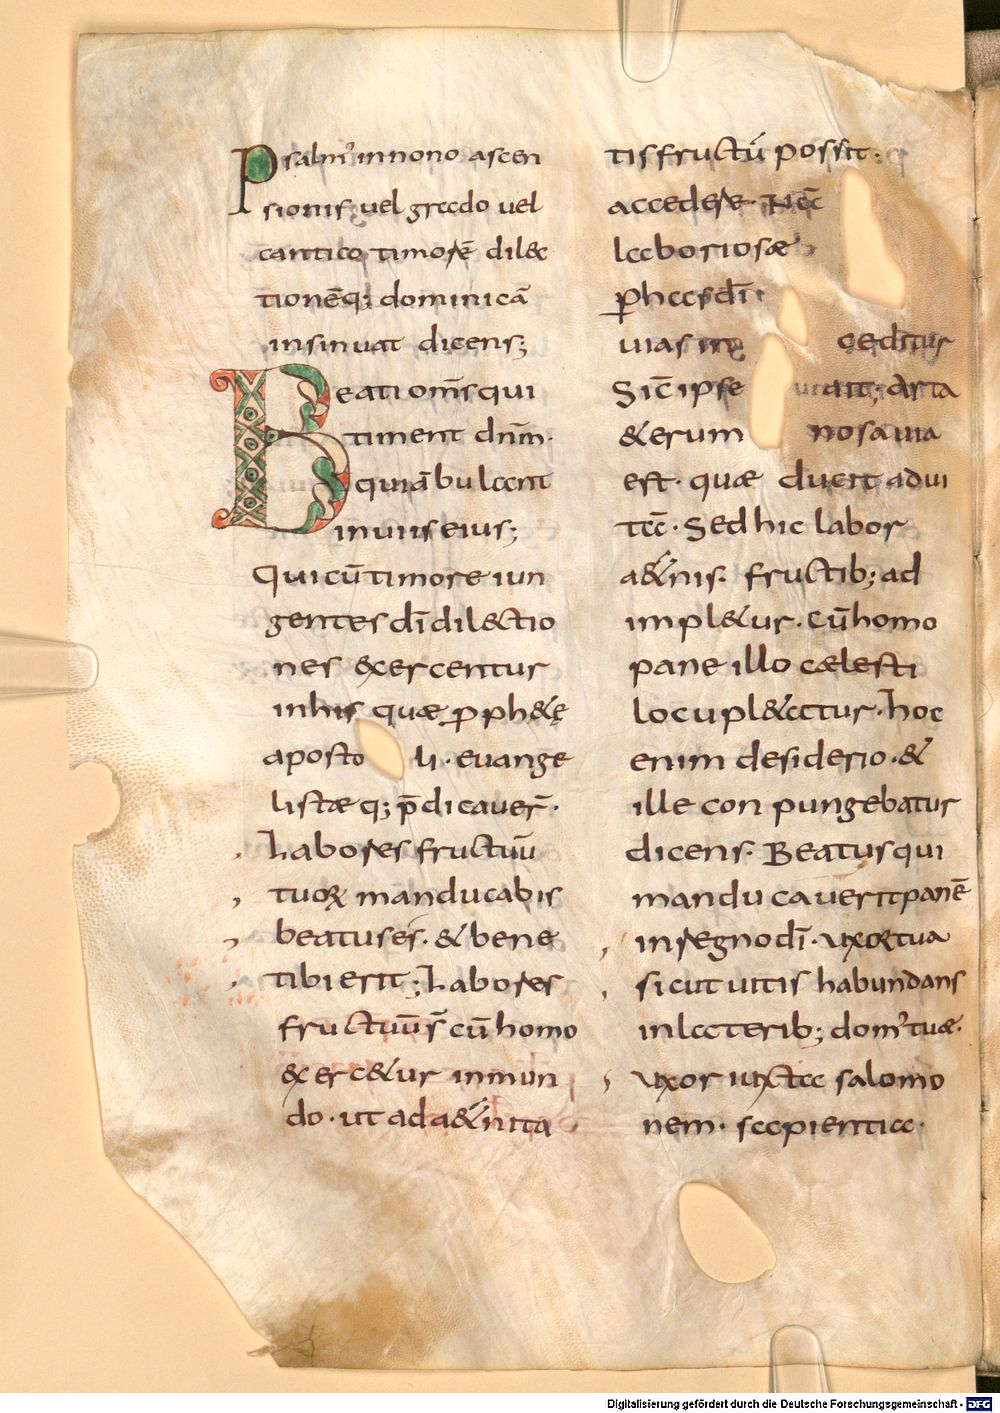 Psalm' in nono ascen
sionis; uel gradu uel
cantico timorē dilec
tionēq; dominicā
insinuat dicens;
Beati om̄s qui
timent dn̄m·
qui ābulant
in uiis eius;
Qui cū timore iun
gentes dī dil&ctio
nes &xercentur
in his quae p̱ph&ę
aposto li· euange
listae q; p̄dicauer̄·
Labores fructuū
tuoꝝ manducabis
beatus es· & bene
tibi erit; Labores
fructuū s̄ cū homo
&xerc&ur in mun
do· ut ad a&́nita
tis fructū possit·
accedere·
laboriosae
p̱ has dī
uias ceditur
Sic̄ ipse ait; Arta
& erum nosa uia
est· quae ducit ad ui
tā· Sed hic labor
a&́nis· fructib; ad
impl&ur· Cū homo
pane illo caelesti
locupl&atur· hoc
enim desiderio· &
ille conpungebatur
dicens· Beatus qui
manducauerit panē
in regno dī· uxor tua
sicut uitis habundans
in laterib; dom' tuae·
uxor iuxta salomo
nem· sapientia·
Digitalisierung gefördert durch die Deutsche Forschungsgemeinschaft - DFG